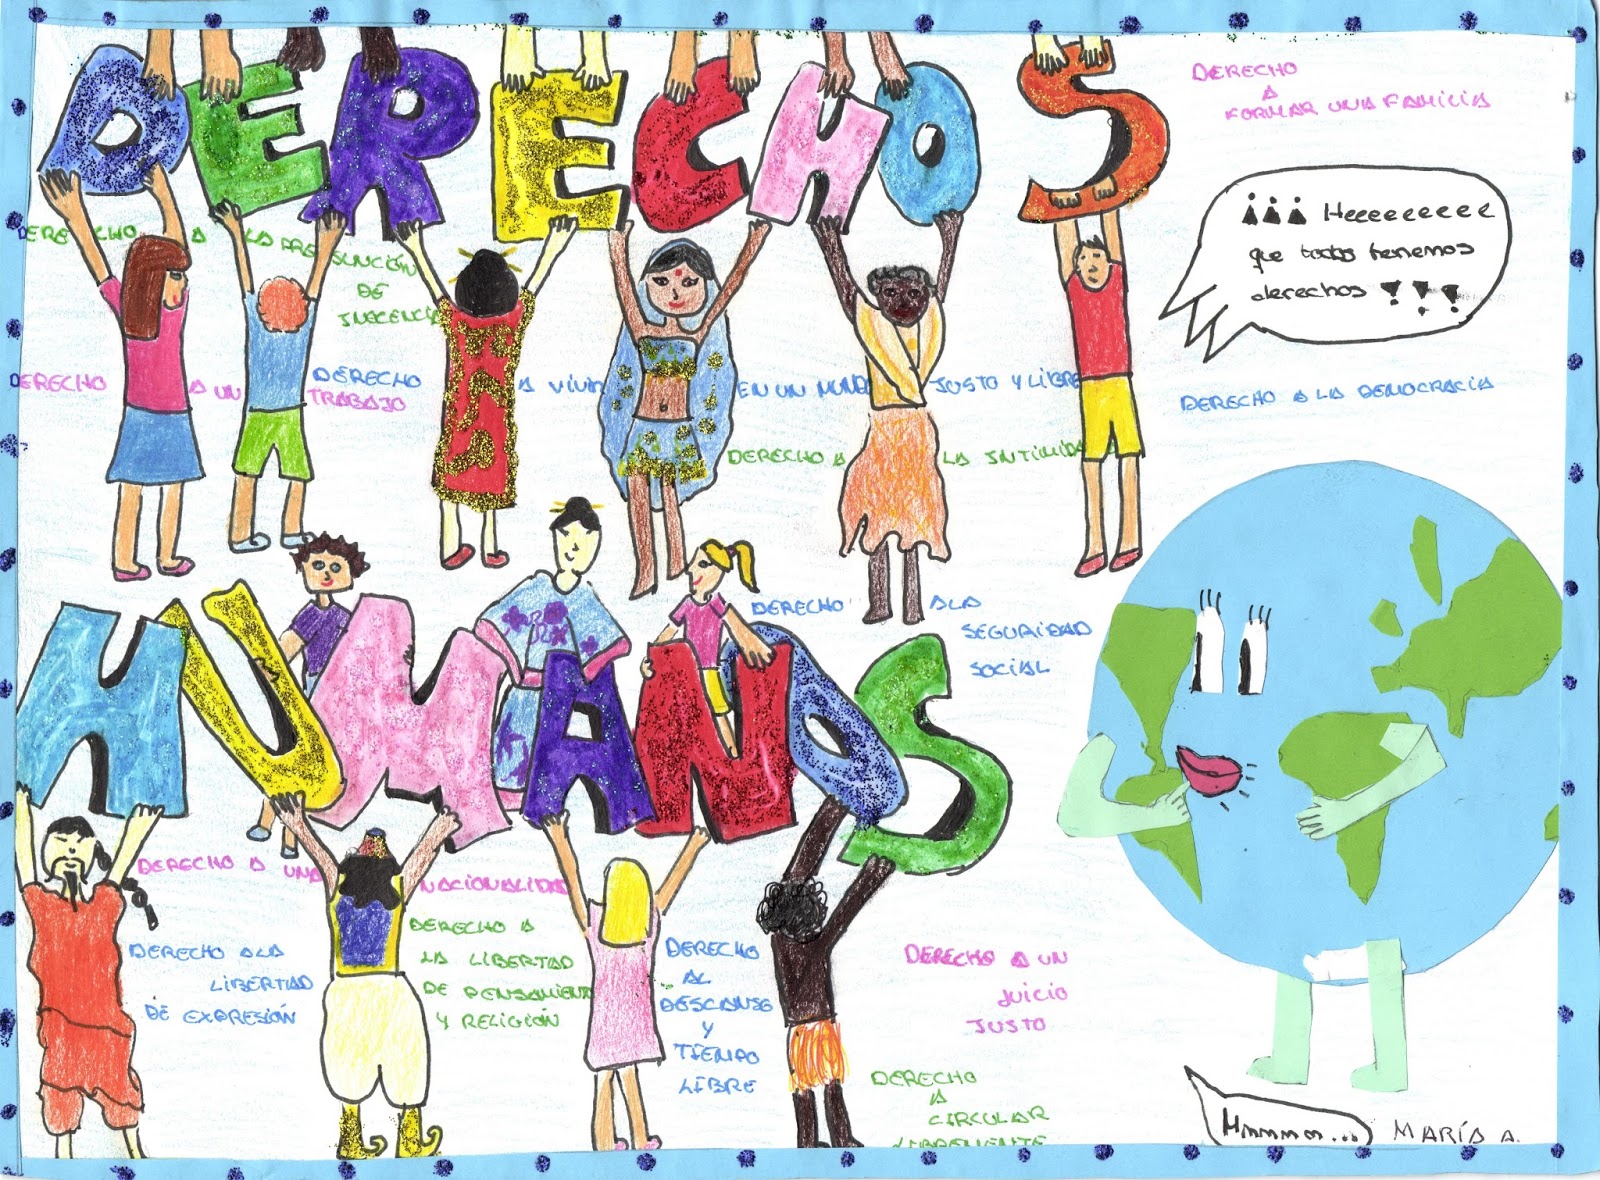 DERECHOS
DERECHO
A
FORMAR UNA FAMILIA
¡¡¡ Heeeeeeeee
que todos tenemos
derechos !!!
DERECHO A LA PRESUNCIÓN
DE
INOCENCIA
DERECHO A UN
TRABAJO
DERECHO A VIVIR EN UN MUNDO JUSTO Y LIBRE
DERECHO A LA DEMOCRACIA
DERECHO A LA INTIMIDAD
DERECHO A LA
SEGURIDAD
SOCIAL
HUMANOS
DERECHO A UNA NACIONALIDAD
DERECHO A LA
LIBERTAD
DE EXPRESIÓN
DERECHO A
LA LIBERTAD
DE PENSAMIENTO
Y RELIGIÓN
DERECHO
AL
DESCANSO
Y
TIEMPO
LIBRE
DERECHO A UN
JUICIO
JUSTO
DERECHO
A
CIRCULAR
LIBREMENTE
Hmmmos...
MARÍA A.